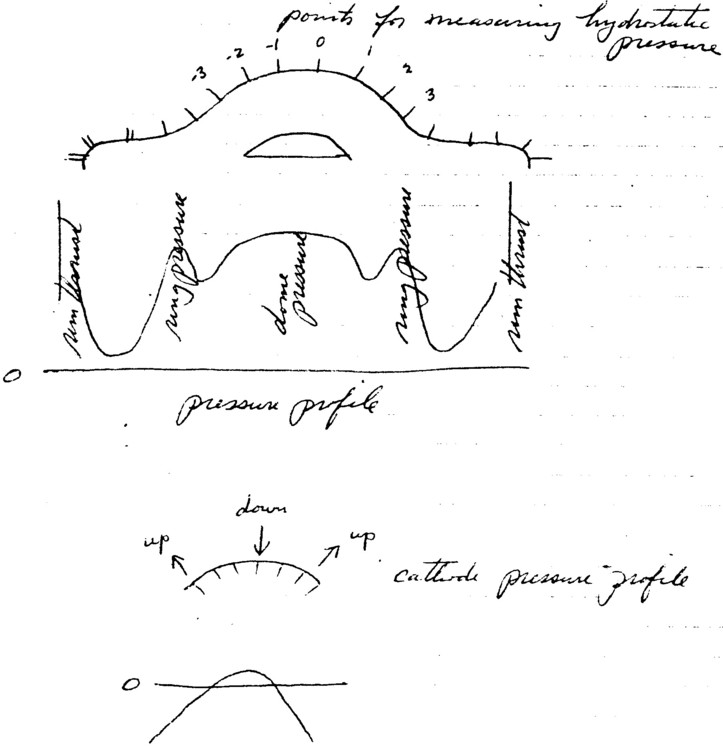 points for measuring hydrostatic
pressure
-3 -2 -1 0 1 2 3
rim thrust
ring pressure
dome pressure
ring pressure
rim thrust
0
pressure profile
down
up
up
cathode pressure profile
0